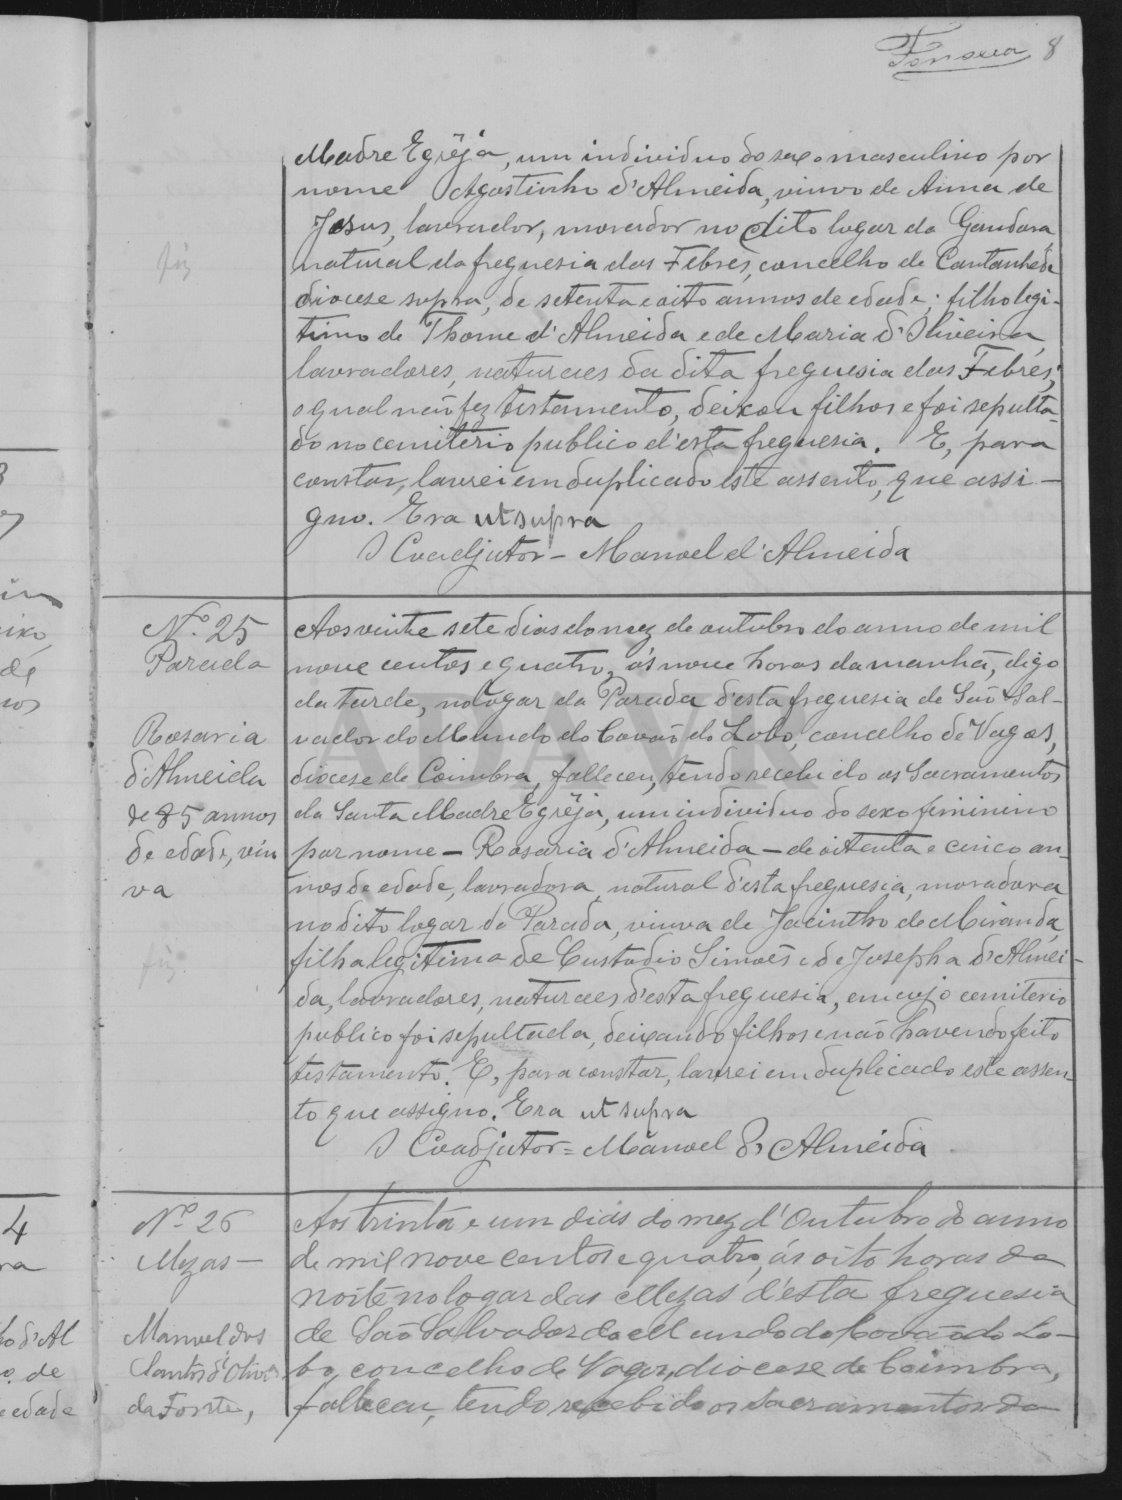 Fonseca 8
Madre Egrêja, um individuo do sexo masculino por
nome Agostinho d'Almeida, viuvo de Anna de
Jesus, lavrador, morador no dito logar da Gandara
natural da freguesia das Febres, concelho de Cantanhede
diocese supra, de setenta e oito annos de edade; filho legi-
timo de Thome d'Almeida e de Maria d'Oliveira,
lavradores, naturaes da dita freguesia das Febres;
o qual não fez testamento, deixou filhos e foi sepulta-
do no cemiterio publico d'esta freguesia. E, para
constar, lavrei em duplicado este assento, que assi-
gno. Era ut supra
O Coadjutor - Manoel d'Almeida
Nº 25
Parada
Rosaria
d'Almeida
de 85 annos
de edade, viu
va
fiz
Aos vinte sete dias do mez de outubro do anno de mil
nove centos e quatro, ás nove horas da manhã, digo
da tarde, no logar da Parada d'esta freguesia de São Sal-
vador do Mundo do Covão do Lobo, concelho de Vagos,
diocese de Coimbra, falleceu, tendo recebido os Sacramentos
da Santa Madre Egrêja, um individuo do sexo feminino
por nome - Rosaria d'Almeida - de oitenta e cinco an-
nos de edade, lavradora, natural d'esta freguesia, moradora
no dito logar da Parada, viuva de Jacintho de Miranda,
filha legitima de Custodio Simões e de Josepha d'Almei-
da, lavradores, naturaes d'esta freguesia, em cujo cemiterio
publico foi sepultada, deixando filhos e não havendo feito
testamento. E, para constar, lavrei em duplicado este assen-
to que assigno. Era ut supra
O Coadjutor = Manoel d'Almeida
Nº 26
Mezas -
Manuel dos
Santos d'Olivª
da Fonte,
Aos trinta e um dias do mez d'Outubro do anno
de mil nove centos e quatro, ás oito horas da
noite no logar das Mezas d'esta freguesia
de São Salvador do Mundo do Covão do Lo-
bo, concelho de Vagos, diocese de Coimbra,
falleceu, tendo recebido os sacramentos da